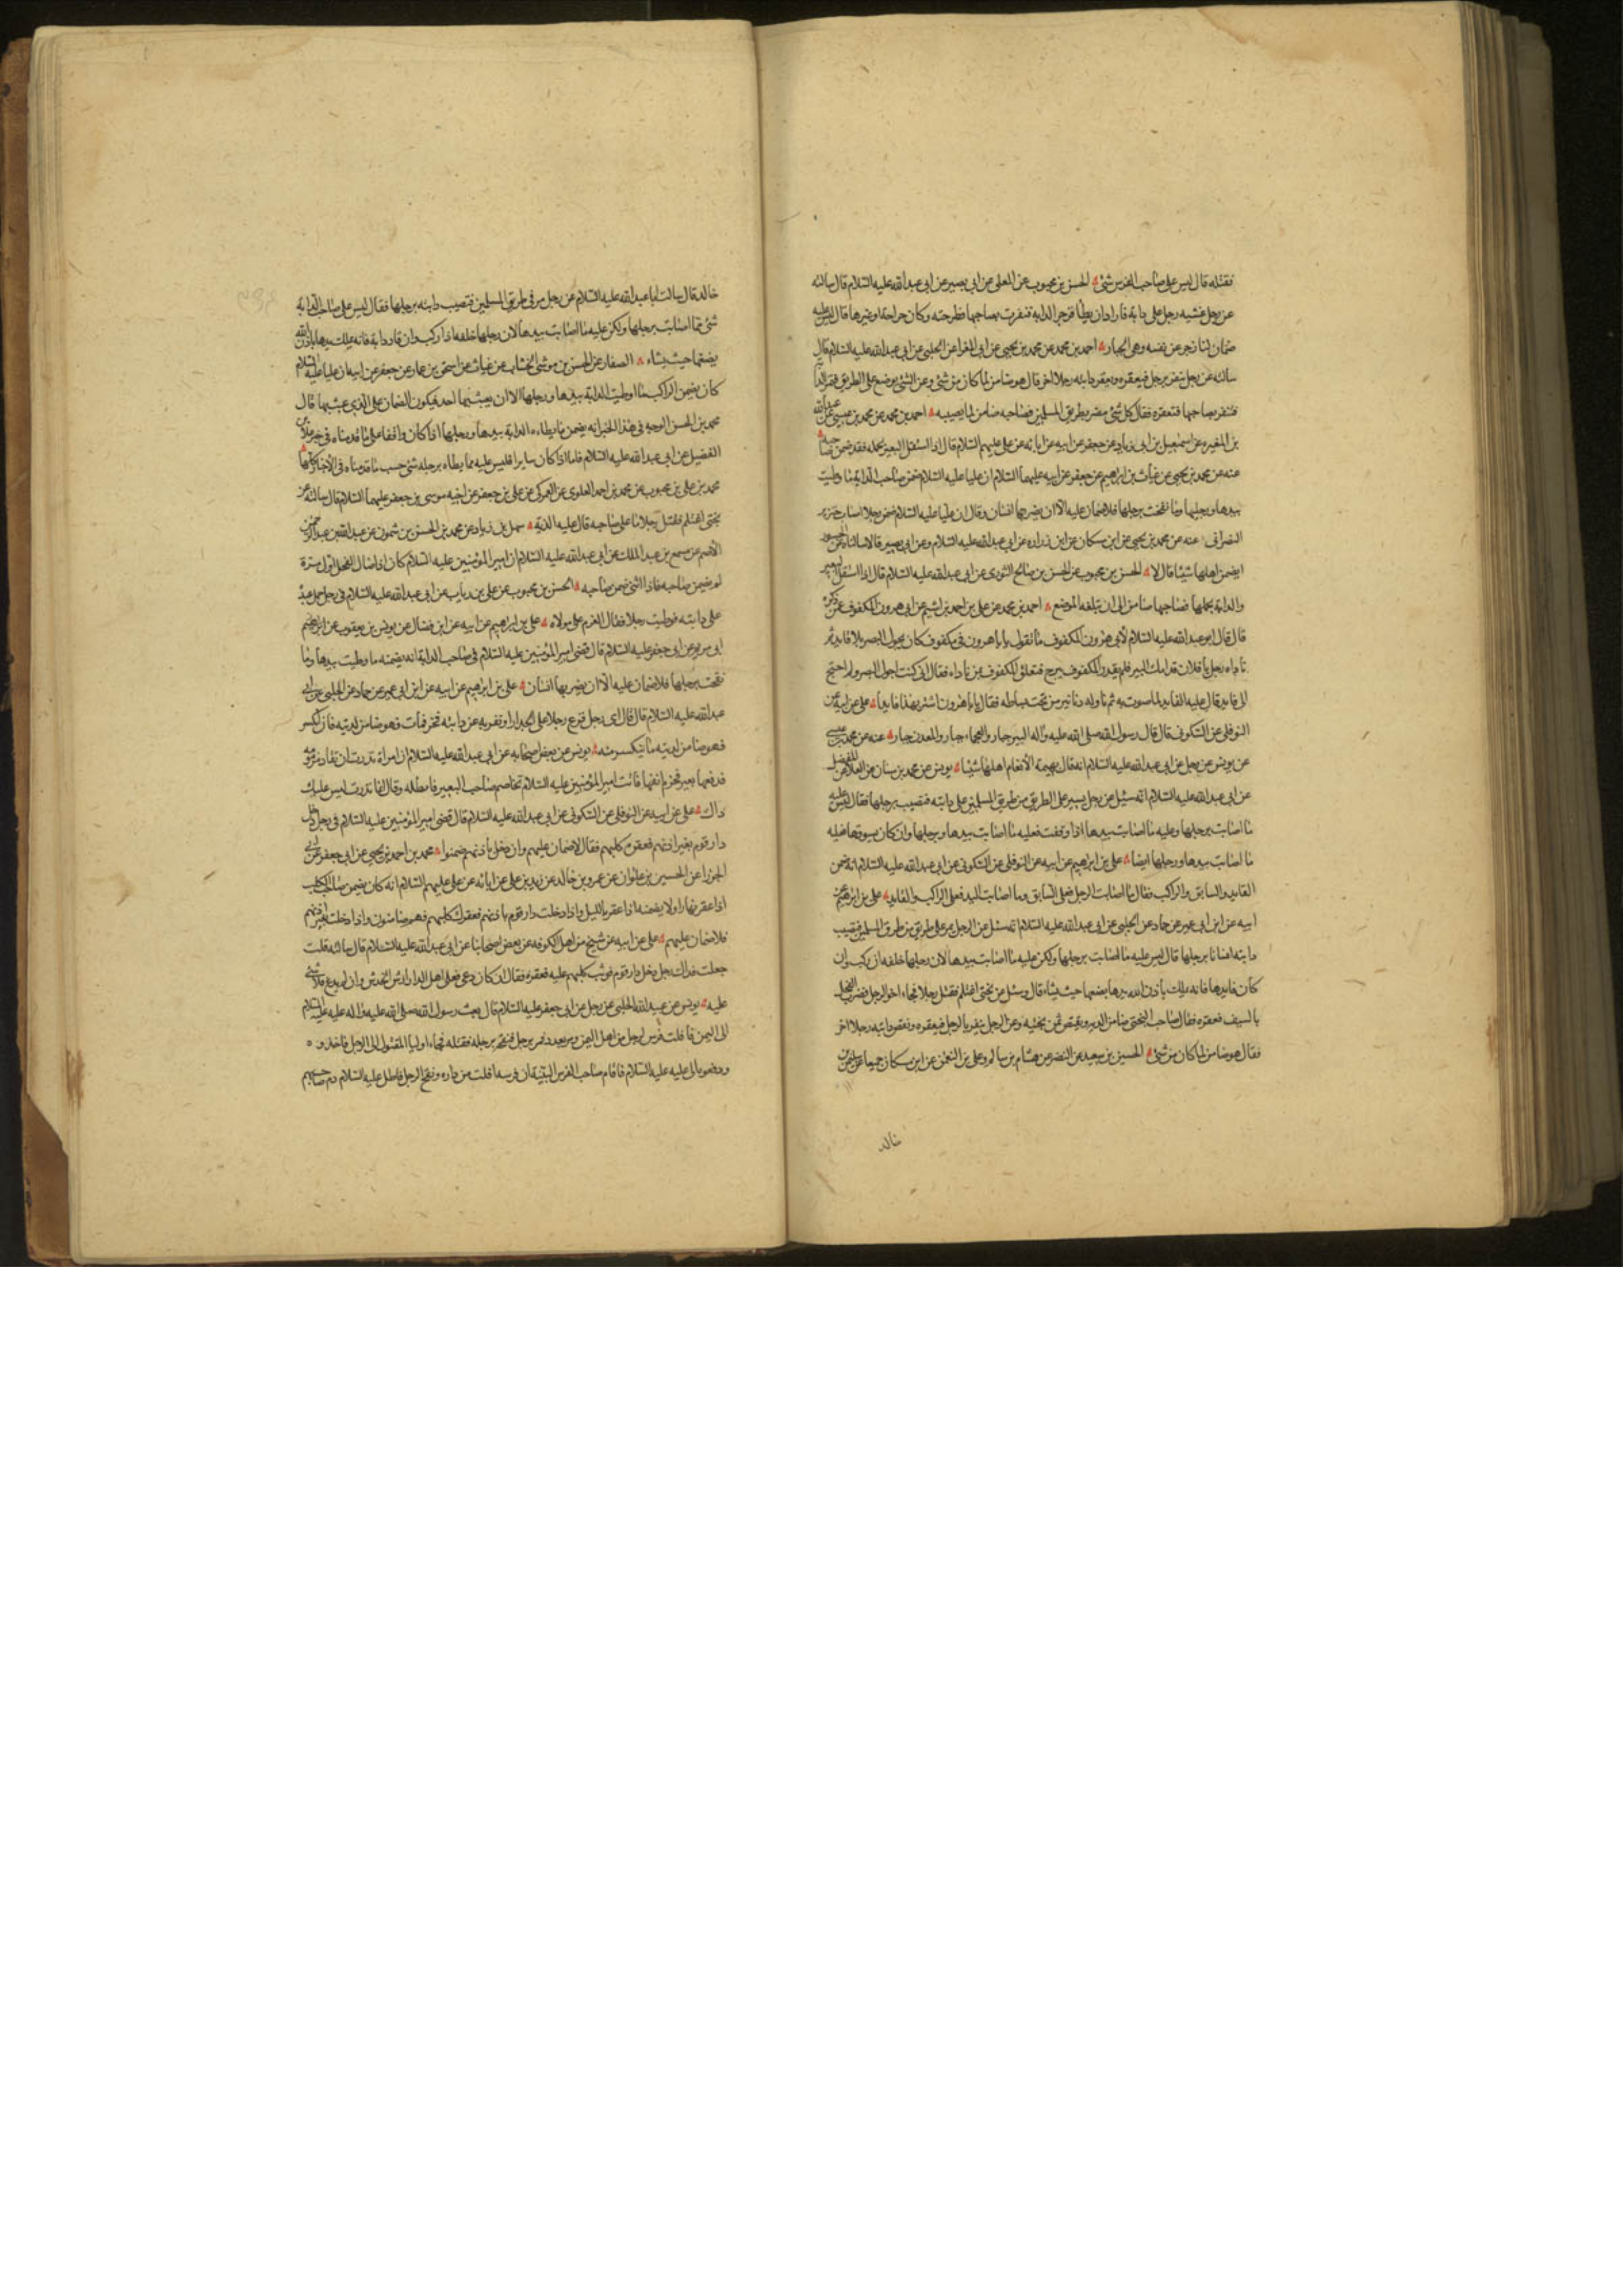 فقتله قال ليس على صاحب الفرس شئ الحسن بن محبوب عن المعلى عن ابى بصير عن ابى عبد الله عليه السلام قال سالته
عن رجل غشيه رجل على دابة فاراد ان يطأ فزجر الدابة فنفرت بصاحبها فطرحته وكان جراحة او غيرها قال ليس عليه
ضمان انما زجر عن نفسه وهى الجبار احمد بن محمد عن محمد بن يحيى عن ابى المغرا عن الحلبى عن ابى عبد الله عليه السلام قال
سالته عن رجل ينفر برجل فيعقره ويعقر دابته رجلا اخر قال هو ضامن لما كان من شئ وعن الشئ يوضع على الطريق فتمر الدابة
فتنفر بصاحبها فتعقره فقال كل شئ مضر بطريق المسلمين فصاحبه ضامن لما يصيبه احمد بن محمد عن محمد بن عيسى عن عبد الله
بن المغيره عن اسمعيل بن ابى زياد عن جعفر عن ابيه عن ابائه عن على عليهم السلام قال اذا استقل البعير بحمله فقد ضمن صاحبه
عنه عن محمد بن يحيى عن غياث بن ابراهيم عن جعفر عن ابيه عليهما السلام ان عليا عليه السلام ضمن صاحب الدابة ما وطيت
بيدها ورجليها وما نفحت برجلها فلا ضمان عليه الا ان يضربها انسان وقال ان عليا عليه السلام ضمن رجلا اصاب خنزير
النصرانى عنه عن محمد بن يحيى عن ابن مسكان عن ابن زراره عن ابى عبد الله عليه السلام وعن ابى بصير قالا سالناه عن
ايضمن اهلها شيئا قال لا الحسن بن محبوب عن الحسن بن صالح الثورى عن ابى عبد الله عليه السلام قال اذا استقل البعير
والدابة بحملها فصاحبها ضامن الى ان تبلغه الموضع احمد بن محمد عن على بن احمد بن اشيم عن ابى هرون المكفوف عمن ذكره
قال قال ابو عبد الله عليه السلام لأبى هرون المكفوف ما تقول يا ابا هرون فى مكفوف كان يجول البصر بلا قايد ثم
ناداه رجل يا فلان قدامك البير فلم يقدر المكفوف يبرح فتعلق المكفوف بمن ناداه فقال انى كنت اجول البصر ولم احتج
الى قايد قال عليه القايد لما صوت به ثم ناوله دنانير من تحت بساطه فقال يا ابا هرون اشتر بهذا قايدا على عن ابيه عن
النوفلى عن السكونى قال قال رسول الله صلى الله عليه وآله البير جبار والعجماء جبار والمعدن جبار عنه عن محمد بن عيسى
عن يونس عن رجل عن ابى عبد الله عليه السلام انه قال بهيمة الأنعام اهلها شيئا يونس عن محمد بن سنان عن العلا بن الفضيل
عن ابى عبد الله عليه السلام انه سئل عن رجل يسير على الطريق من طريق المسلمين على دابته فتصيب برجلها فقال ليس عليه
ما اصابت برجلها وعليه ما اصابت بيدها اذا وقفت فعليه ما اصابت بيدها ورجلها وان كان يسوقها فعليه
ما اصابت بيدها ورجلها ايضا على بن ابراهيم عن ابيه عن النوفلى عن السكونى عن ابى عبد الله عليه السلام انه ضمن
القايد والسايق والراكب فقال ما اصابت الرجل فعلى السايق وما اصابت اليد فعلى الراكب والقايد على بن ابراهيم عن
ابيه عن ابن ابى عمير عن حماد عن الحلبى عن ابى عبد الله عليه السلام انه سئل عن الرجل يمر على طريق من طرق المسلمين فتصيب
دابته انسانا برجلها قال ليس عليه ما اصابت برجلها ولكن عليه ما اصابت بيدها لان رجلها خلفه ان ركب وان
كان قايدها فانه يملك باذن الله يدها يضعها حيث يشاء قال وسئل عن بختى اغتلم فقتل رجلا فجاء اخو الرجل فضرب الفحل
بالسيف فعقره فقال صاحب البختى ضامن الدية ويقبض ثمن بختيه وعن الرجل ينفر بالرجل فيعقره وتعقر دابته رجلا اخر
فقال هو ضامن لما كان من شئ الحسين بن سعيد عن النضر عن هشام بن سالم وعلى بن النعمن عن ابن مسكان جميعا عن سليمن بن
خالد
خالد قال سالت ابا عبد الله عليه السلام عن رجل مر فى طريق المسلمين فتصيب دابته برجلها فقال ليس على صاحب الدابة
شئ مما اصابت برجلها ولكن عليه ما اصابت بيدها لان رجلها خلفه اذا ركب وان قاد دابة فانه يملك يدها باذن الله
يضعها حيث يشاء الصفار عن الحسن بن موسى الخشاب عن غياث عن اسحق بن عمار عن جعفر عن ابيه ان عليا عليه السلام
كان يضمن الراكب ما اوطيت الدابة بيدها ورجلها الا ان يعبث بها احد فيكون الضمان على الذى عبث بها قال
محمد بن الحسن الوجه فى هذا الخبر انه يضمن ما يطاءه الدابة بيدها ورجلها اذا كان واقفا على ما قدمناه فى خبر علا بن
الفضيل عن ابى عبد الله عليه السلام فاما اذا كان سايرا فليس عليه مما يطاه برجله شئ حسب ما قدمناه فى الأخبار كلها
محمد بن على بن محبوب عن محمد بن احمد العلوى عن العمركى عن على بن جعفر عن اخيه موسى بن جعفر عليهما السلام قال سالته عن
بختى اغتلم فقتل رجلا ما على صاحبه قال عليه الدية سهل بن زياد عن محمد بن الحسن بن شمون عن عبد الله بن عبد الرحمن
الأصم عن مسمع بن عبد الملك عن ابى عبد الله عليه السلام ان امير المؤمنين عليه السلام كان اذا صال الفحل اول مرة
لم يضمن صاحبه فاذا اثنى ضمن صاحبه الحسن بن محبوب عن على بن رياب عن ابى عبد الله عليه السلام فى رجل حمل عبده
على دابته فوطيت رجلا فقال الغرم على مولاه على بن ابراهيم عن ابيه عن ابن فضال عن يونس بن يعقوب عن
ابى مريم عن ابى جعفر عليه السلام قال قضى امير المؤمنين عليه السلام فى صاحب الدابة انه يضمنه ما وطيت بيدها وما
نفحت برجلها فلا ضمان عليه الا ان يضربها انسان على بن ابراهيم عن ابيه عن ابن ابى عمير عن حماد عن الحلبى عن ابى
عبد الله عليه السلام قال قال اى رجل فزع رجلا على الجدار او نفر به عن دابته فخر فمات فهو ضامن لديته فان انكسر
فهو ضامن لدية ما ينكسر منه يونس عن بعض اصحابه عن ابى عبد الله عليه السلام ان امراة نذرت ان تقاد مزمومه
فدفعها بعير فخرم انفها فاتت امير المؤمنين عليه السلام تخاصم صاحب البعير فابطله وقال انما نذرت ليس عليك
ذاك على عن ابيه عن النوفلى عن السكونى عن ابى عبد الله عليه السلام قال قضى امير المؤمنين عليه السلام فى رجل دخل
دار قوم بغير اذنهم فعقره كلبهم فقال لا ضمان عليهم وان دخل باذنهم ضمنوا محمد بن احمد بن يحيى عن ابى جعفر عن ابى
الجوزا عن الحسين بن علوان عن عمرو بن خالد عن زيد بن على عن ابائه عن على عليهم السلام انه كان يضمن صاحب الكلب
اذا عقر نهارا ولا يضمنه اذا عقر بالليل واذا دخلت دار قوم باذنهم فعقرك كلبهم فهم ضامنون واذا دخلت بغير اذنهم
فلا ضمان عليهم على عن ابيه عن شيخ من اهل الكوفه عن بعض اصحابنا عن ابى عبد الله عليه السلام قال سالته قلت
جعلت فداك رجل دخل دار قوم فوثب كلبهم عليه فعقره فقال ان كان دعى فعلى اهل الدار ارش الخدش وان لم يدع فلا شئ
عليه يونس عن عبيد الله الحلبى عن رجل عن ابى جعفر عليه السلام قال بعث رسول الله صلى الله عليه وآله عليا عليه السلام
الى اليمن فافلت فرس لرجل من اهل اليمن ومر يعدو فمر برجل فنفحه برجله فقتله فجاء اوليا المقتول الى الرجل فاخذوه
ودفعوه الى على عليه السلام فاقام صاحب الفرس البينة ان فرسه افلت من داره ونفح الرجل فابطل عليه السلام دم صاحبهم